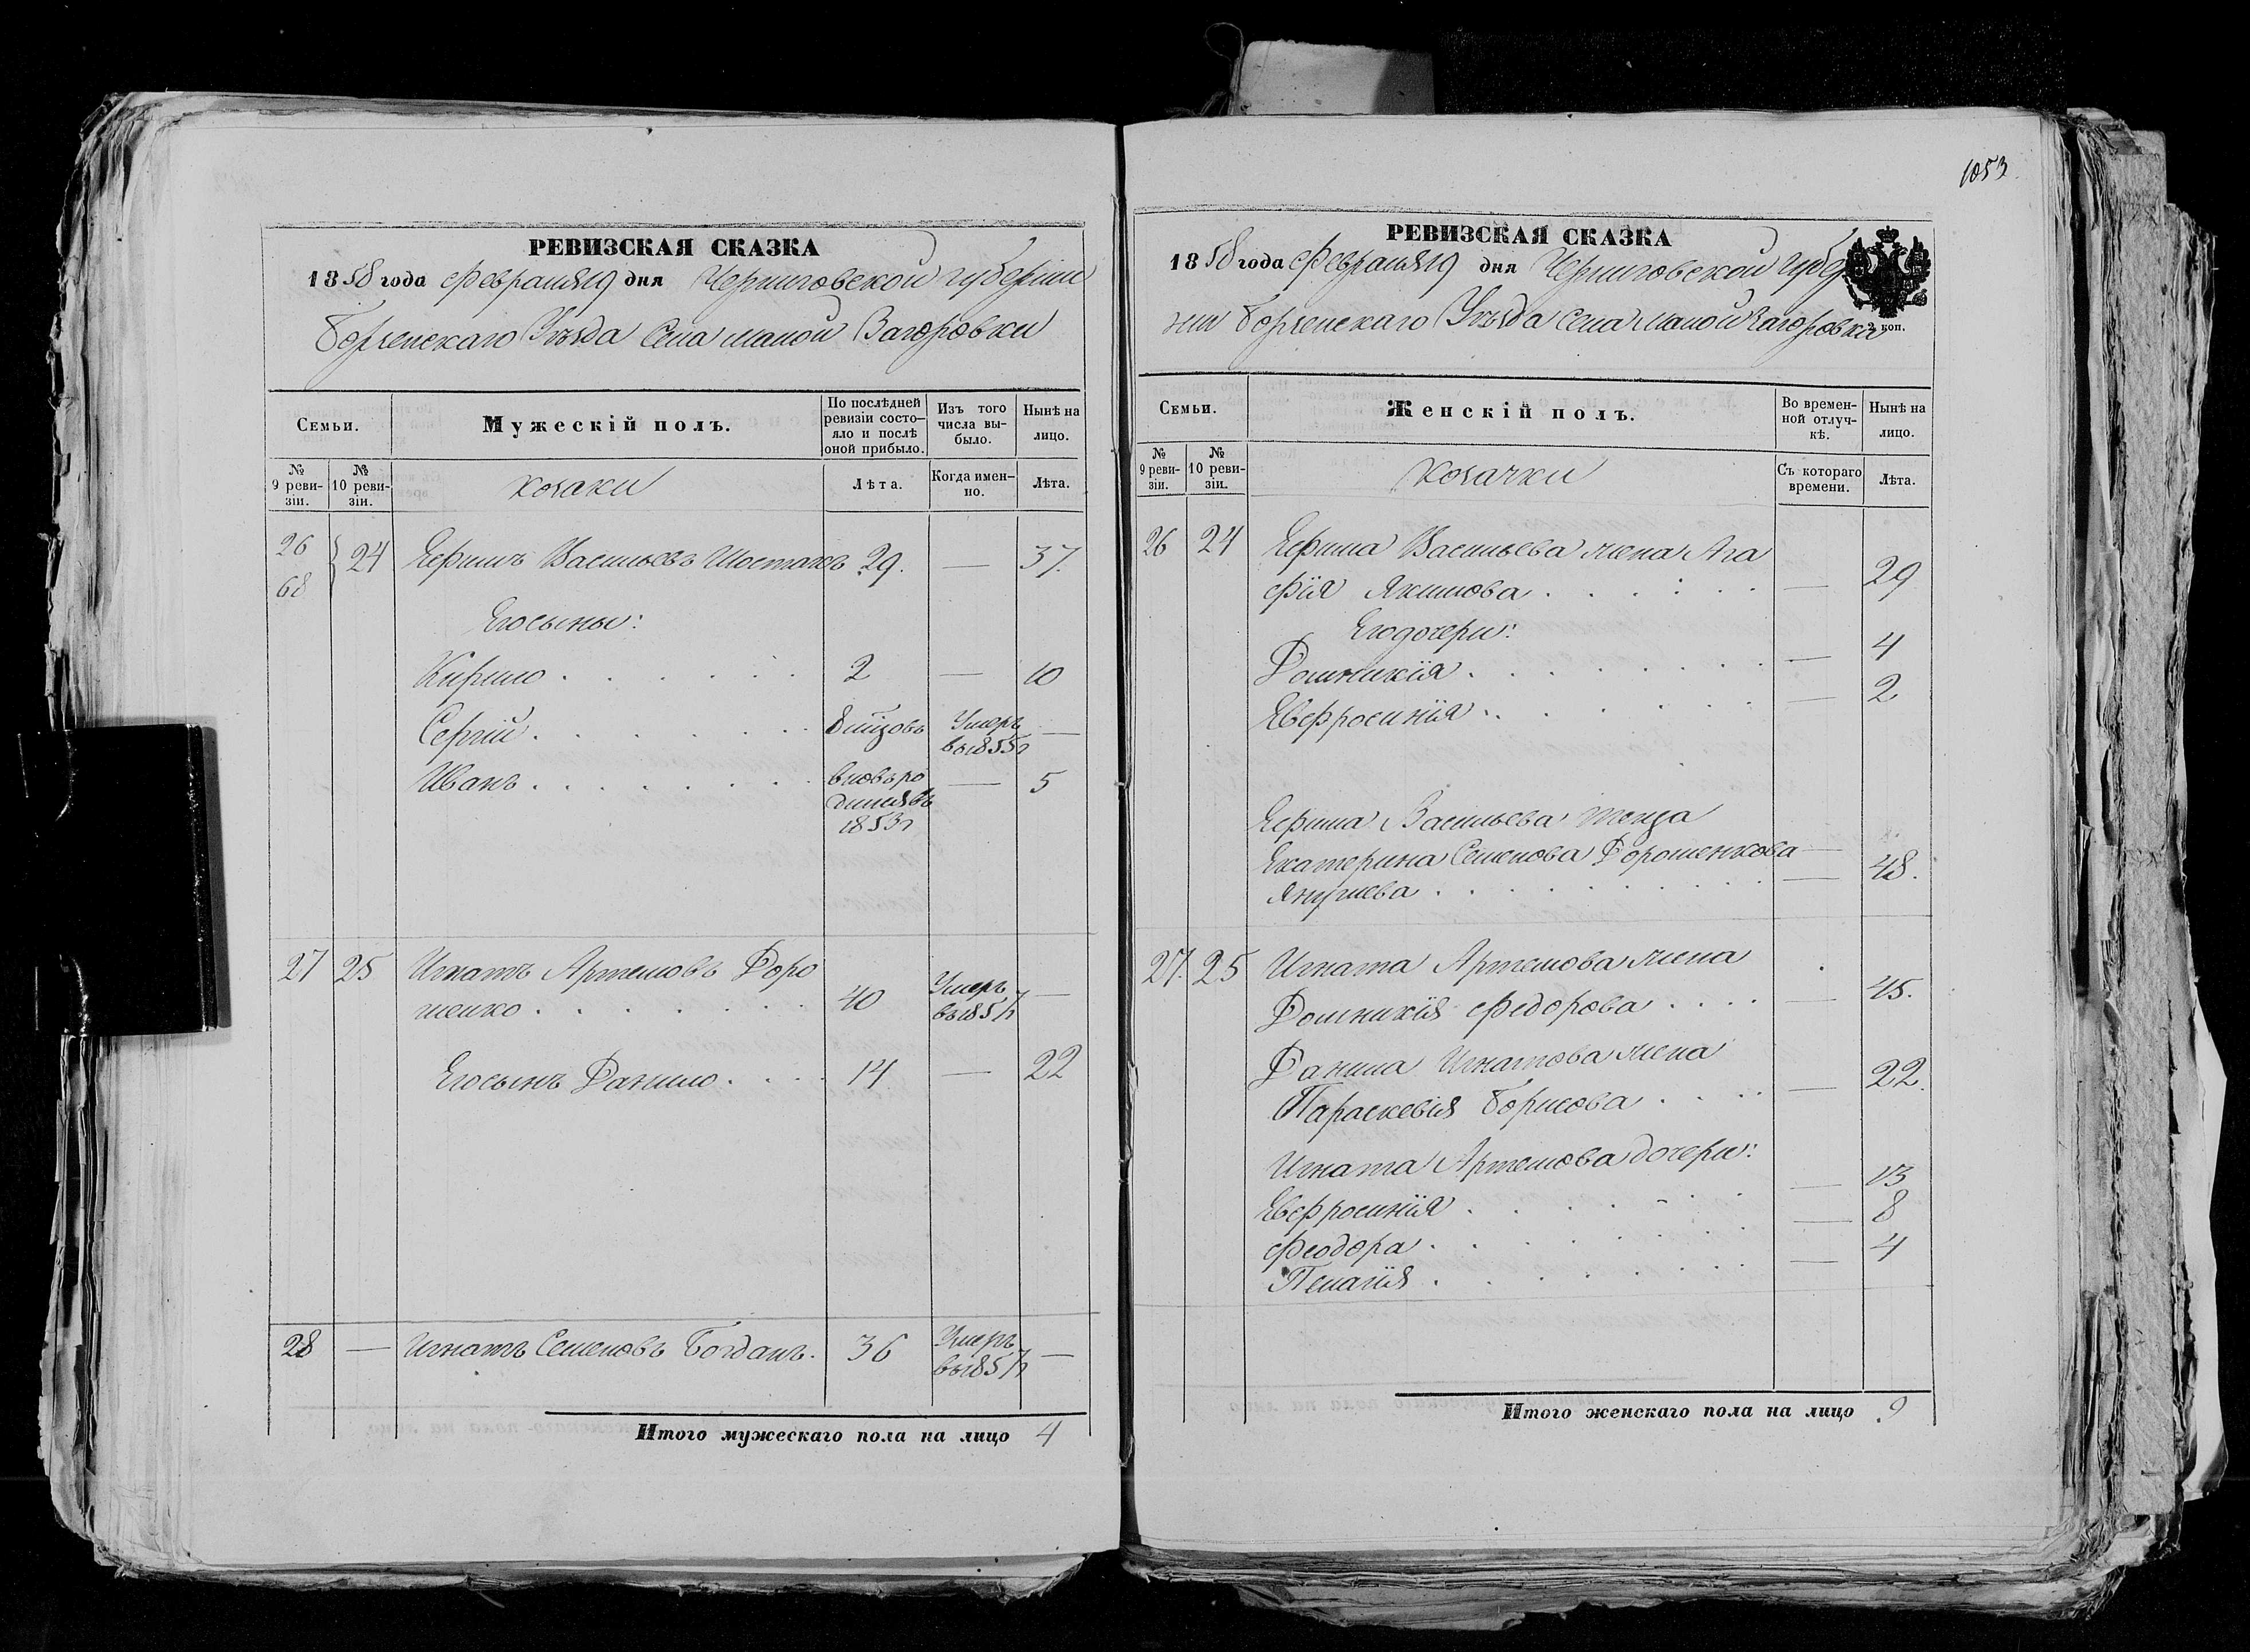 РЕВИЗСКАЯ СКАЗКА
1858 года Февраля 19 дня Черниговской губерніи
Борзенскаго Уѣзда Села Малой Загоровки
Семьи.
Мужескій полъ.
По послѣдней ревизіи состояло и послѣ оной прибыло.
Изъ того числа выбыло.
Нынѣ на лицо.
№ 9 ревизіи.
№ 10 ревизіи.
козаки
Лѣта.
Когда именно.
Лѣта.
26 68 24 Ефимъ Васильевъ Шостакъ 29. — 37.
Его сыны:
Кирило . . . . . . 2 — 10
Сергій . . . . . . . Умеръ въ 1855 г —
Иванъ . . . . . . . вновь ро — 5
дился въ
1853 г
27 25 Игнатъ Артемовъ Доро
шенко . . . . . . . 40 Умеръ въ 1857 г —
Его сынъ Данило . . . . 14 — 22
28 — Игнатъ Семеновъ Богданъ. 36 Умеръ въ 1857 г —
Итого мужескаго пола на лицо 4
1053
РЕВИЗСКАЯ СКАЗКА
1858 года Февраля 19 дня Черниговской Губер
ніи Борзенскаго Уѣзда Села Малой Загоровки
коп.
Семьи.
Женскій полъ.
Во временной отлучкѣ.
Нынѣ на лицо.
№ 9 ревизіи.
№ 10 ревизіи.
козачки
Съ котораго времени.
Лѣта.
26 24 Ефима Васильева жена Ага
фія Якимова . . . . . . — 29
Его дочери:
Домникія . . . . . . . . — 4
Евфросинія . . . . . . . — 2
Ефима Васильева теща
Екатерина Семенова Дорошенкова —
. . . . . . . . . — 48.
27. 25 Игната Артемова жена
Домникія Федорова . . . . — 45.
Данила Игнатова жена
Параскевія Борисова . . . . — 22.
Игната Артемова дочери:
Евфросинія . . . . . . — 13
Феодора . . . . . . . — 8
Пелагія . . . . . . . . — 4
Итого женскаго пола на лицо 9